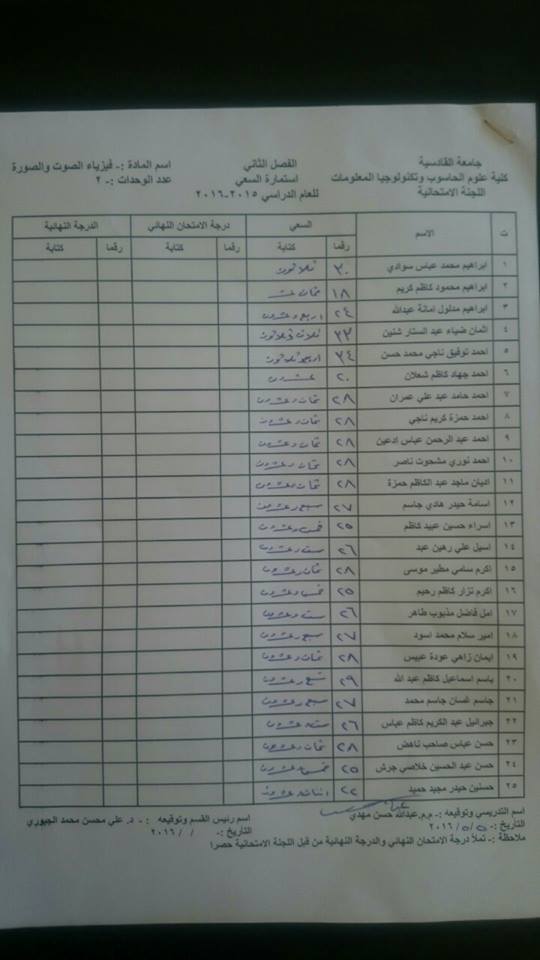 جامعة القادسية
كلية علوم الحاسوب وتكنولوجيا المعلومات
اللجنة الامتحانية
الفصل الثاني
استمارة السعي
للعام الدراسي ٢٠١٥-٢٠١٦
اسم المادة :- فيزياء الصوت والصورة
عدد الوحدات :- ٢
ت الاسم السعي درجة الامتحان النهائي الدرجة النهائية
رقما كتابة رقما كتابة رقما كتابة
١ ابراهيم محمد عباس سوادي ٣٠ ثلاثون
٢ ابراهيم محمود كاظم كريم ١٨ ثمان عشر
٣ ابراهيم مدلول امانة عبدالله ٢٤ اربع وعشرون
٤ اثمان ضياء عبد الستار شنين ٣٣ ثلاث وثلاثون
٥ احمد توفيق ناجي محمد حسن ٣٤ اربع وثلاثون
٦ احمد جهاد كاظم شعلان ٢٠ عشرون
٧ احمد حامد عبد علي عمران ٢٨ ثمان وعشرون
٨ احمد حمزة كريم ناجي ٢٨ ثمان وعشرون
٩ احمد عبد الرحمن عباس ادعين ٢٨ ثمان وعشرون
١٠ احمد نوري مشحوت ناصر ٢٨ ثمان وعشرون
١١ اديان ماجد عبد الكاظم حمزة ٢٨ ثمان وعشرون
١٢ اسامة حيدر هادي جاسم ٢٧ سبع وعشرون
١٣ اسراء حسين عبيد كاظم ٢٥ خمس وعشرون
١٤ اسيل علي رهين عبد ٢٦ ست وعشرون
١٥ اكرم سامي مطير موسى ٢٨ ثمان وعشرون
١٦ اكرم نزار كاظم رحيم ٢٥ خمس وعشرون
١٧ امل فاضل مذبوب طاهر ٢٦ ست وعشرون
١٨ امير سلام محمد اسود ٢٧ سبع وعشرون
١٩ ايمان زاهي عودة عبيس ٢٨ ثمان وعشرون
٢٠ باسم اسماعيل كاظم عبد الله ٢٩ تسع وعشرون
٢١ جاسم غسان جاسم محمد ٢٧ سبع وعشرون
٢٢ جبرائيل عبد الكريم كاظم عباس ٢٦ ست وعشرون
٢٣ حسن عباس صاحب ناهض ٢٨ ثمان وعشرون
٢٤ حسن عبد الحسين خلاصي جرش ٢٥ خمس وعشرون
٢٥ حسنين حيدر مجيد حميد ٢٢ اثنان وعشرون
اسم التدريسي وتوقيعه :- م.م.عبدالله حسن مهدي
التاريخ :- ٥ / ٥ / ٢٠١٦
اسم رئيس القسم وتوقيعه :- د. علي محسن محمد الجبوري
التاريخ :- / / ٢٠١٦
ملاحظة :- تملأ درجة الامتحان النهائي والدرجة النهائية من قبل اللجنة الامتحانية حصرا